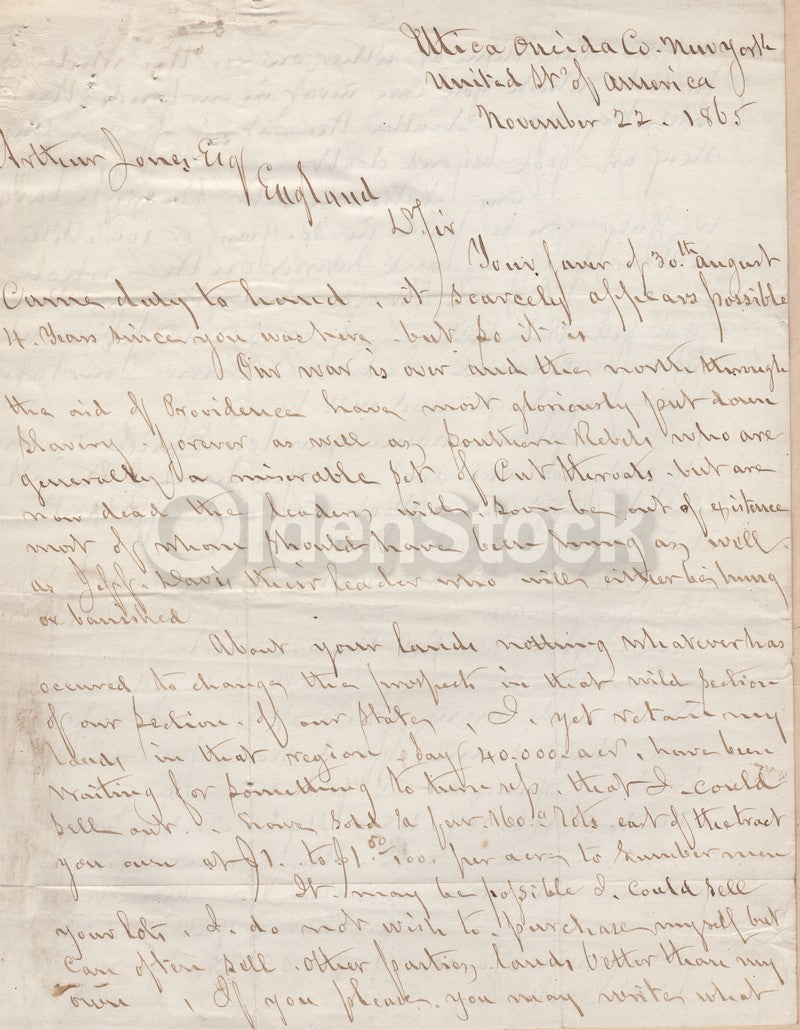 Utica Oneida Co. New York
United Sts of America
November 22. 1865
Arthur Jones Esq
England
D. Sir
Your favor of 30.th August
Came duly to hand, it scarcely appears possible
4. Years since you was here, but so it is
Our war is over and the north through
the aid of Providence have most gloriously put down
Slavery. forever as well as Southern Rebels who are
generally a miserable set of Cut throats. but are
now dead the leaders will soon be out of existence
most of whom should have been hung as well
as Jeff. Davis their leader who will either be hung
or banished
About your lands nothing whatever has
occured to change the prospect in that wild section
of our section. of our State, I. yet retain my
lands in that region. Say 40.000. acr, have been
waiting for something to turn up, that I could
sell out. have sold a few 160.a lots east of the tract
you own at $1. to $1.50/100. per acre to Lumber men
It may be possible I. could sell
your lots, I. do not wish to purchase myself but
can often sell other parties lands better than my
own, If you please you may write what
OldenStock